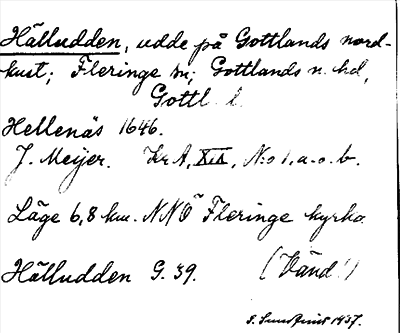 Hälludden, udde på Gottlands nord-
kust; Fleringe sn; Gottlands n. hd,
Gottl. l.
Hellenäs 1646.
J. Meijer. Kr A, XIX, N:o 1, a.o.b.
Läge 6,8 km. NNÖ Fleringe kyrka
Hälludden G. 39.
(Vänd!)
S. Sundqvist 1937.